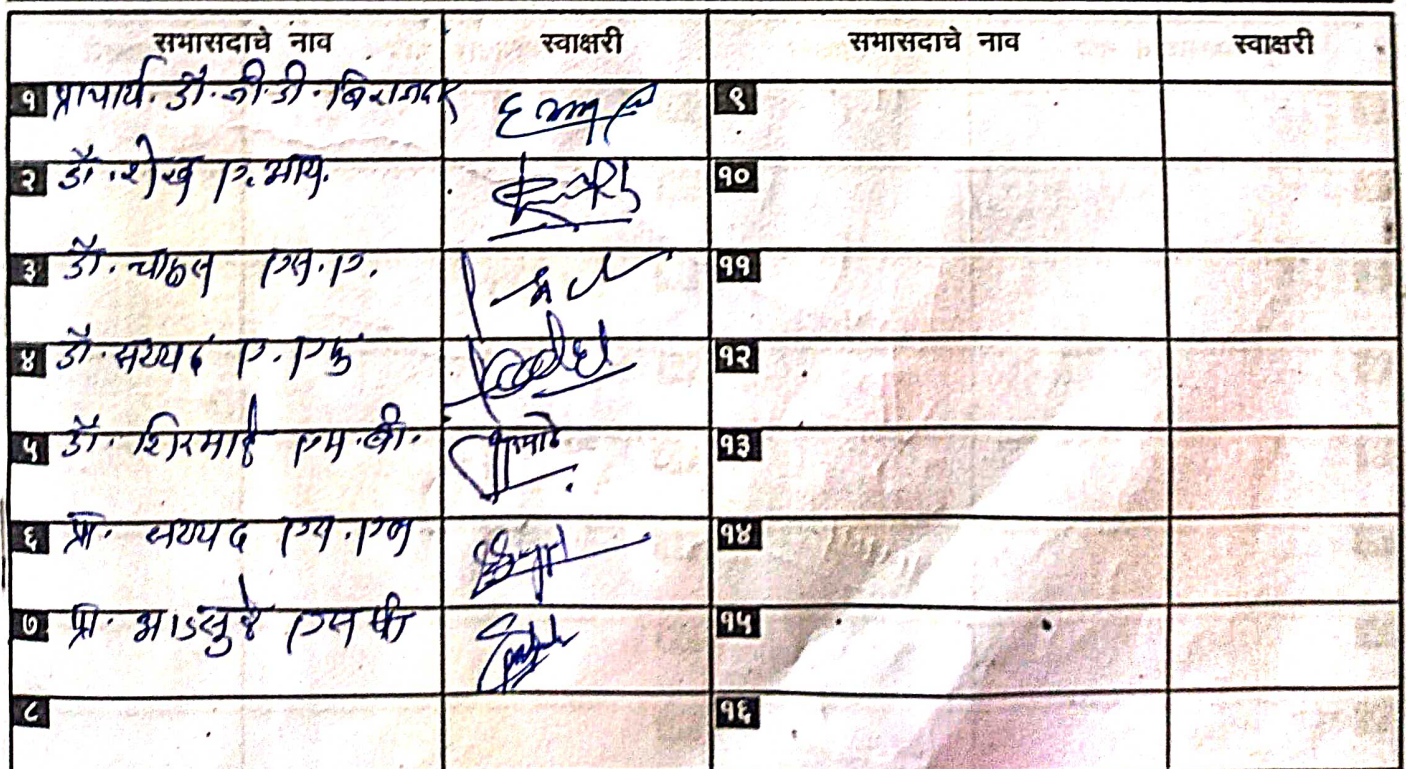 सभासदाचे नाव स्वाक्षरी सभासदाचे नाव स्वाक्षरी
१ प्राचार्य. डॉ. जी. डी. बिराजदार ९
२ डॉ. शेख ए. आय. १०
३ डॉ. चाऊस एस. ए. ११
४ डॉ. सय्यद ए. १२
५ डॉ. शिरमाळे एम. बी. १३
६ प्रा. सय्यद एस. एन १४
७ प्रा. आडसुळे एस पी १५
८ १६